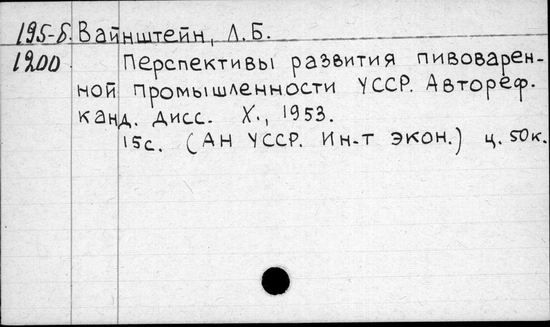 195-Б. Вайнштейн, Л.Б.
1200. Перспективы развития пивоварен-
ной промышленности УССР. Автореф.
канд. дисс. Х., 1953.
15с. (АН УССР. Ин-т экон.) ц. 50к.